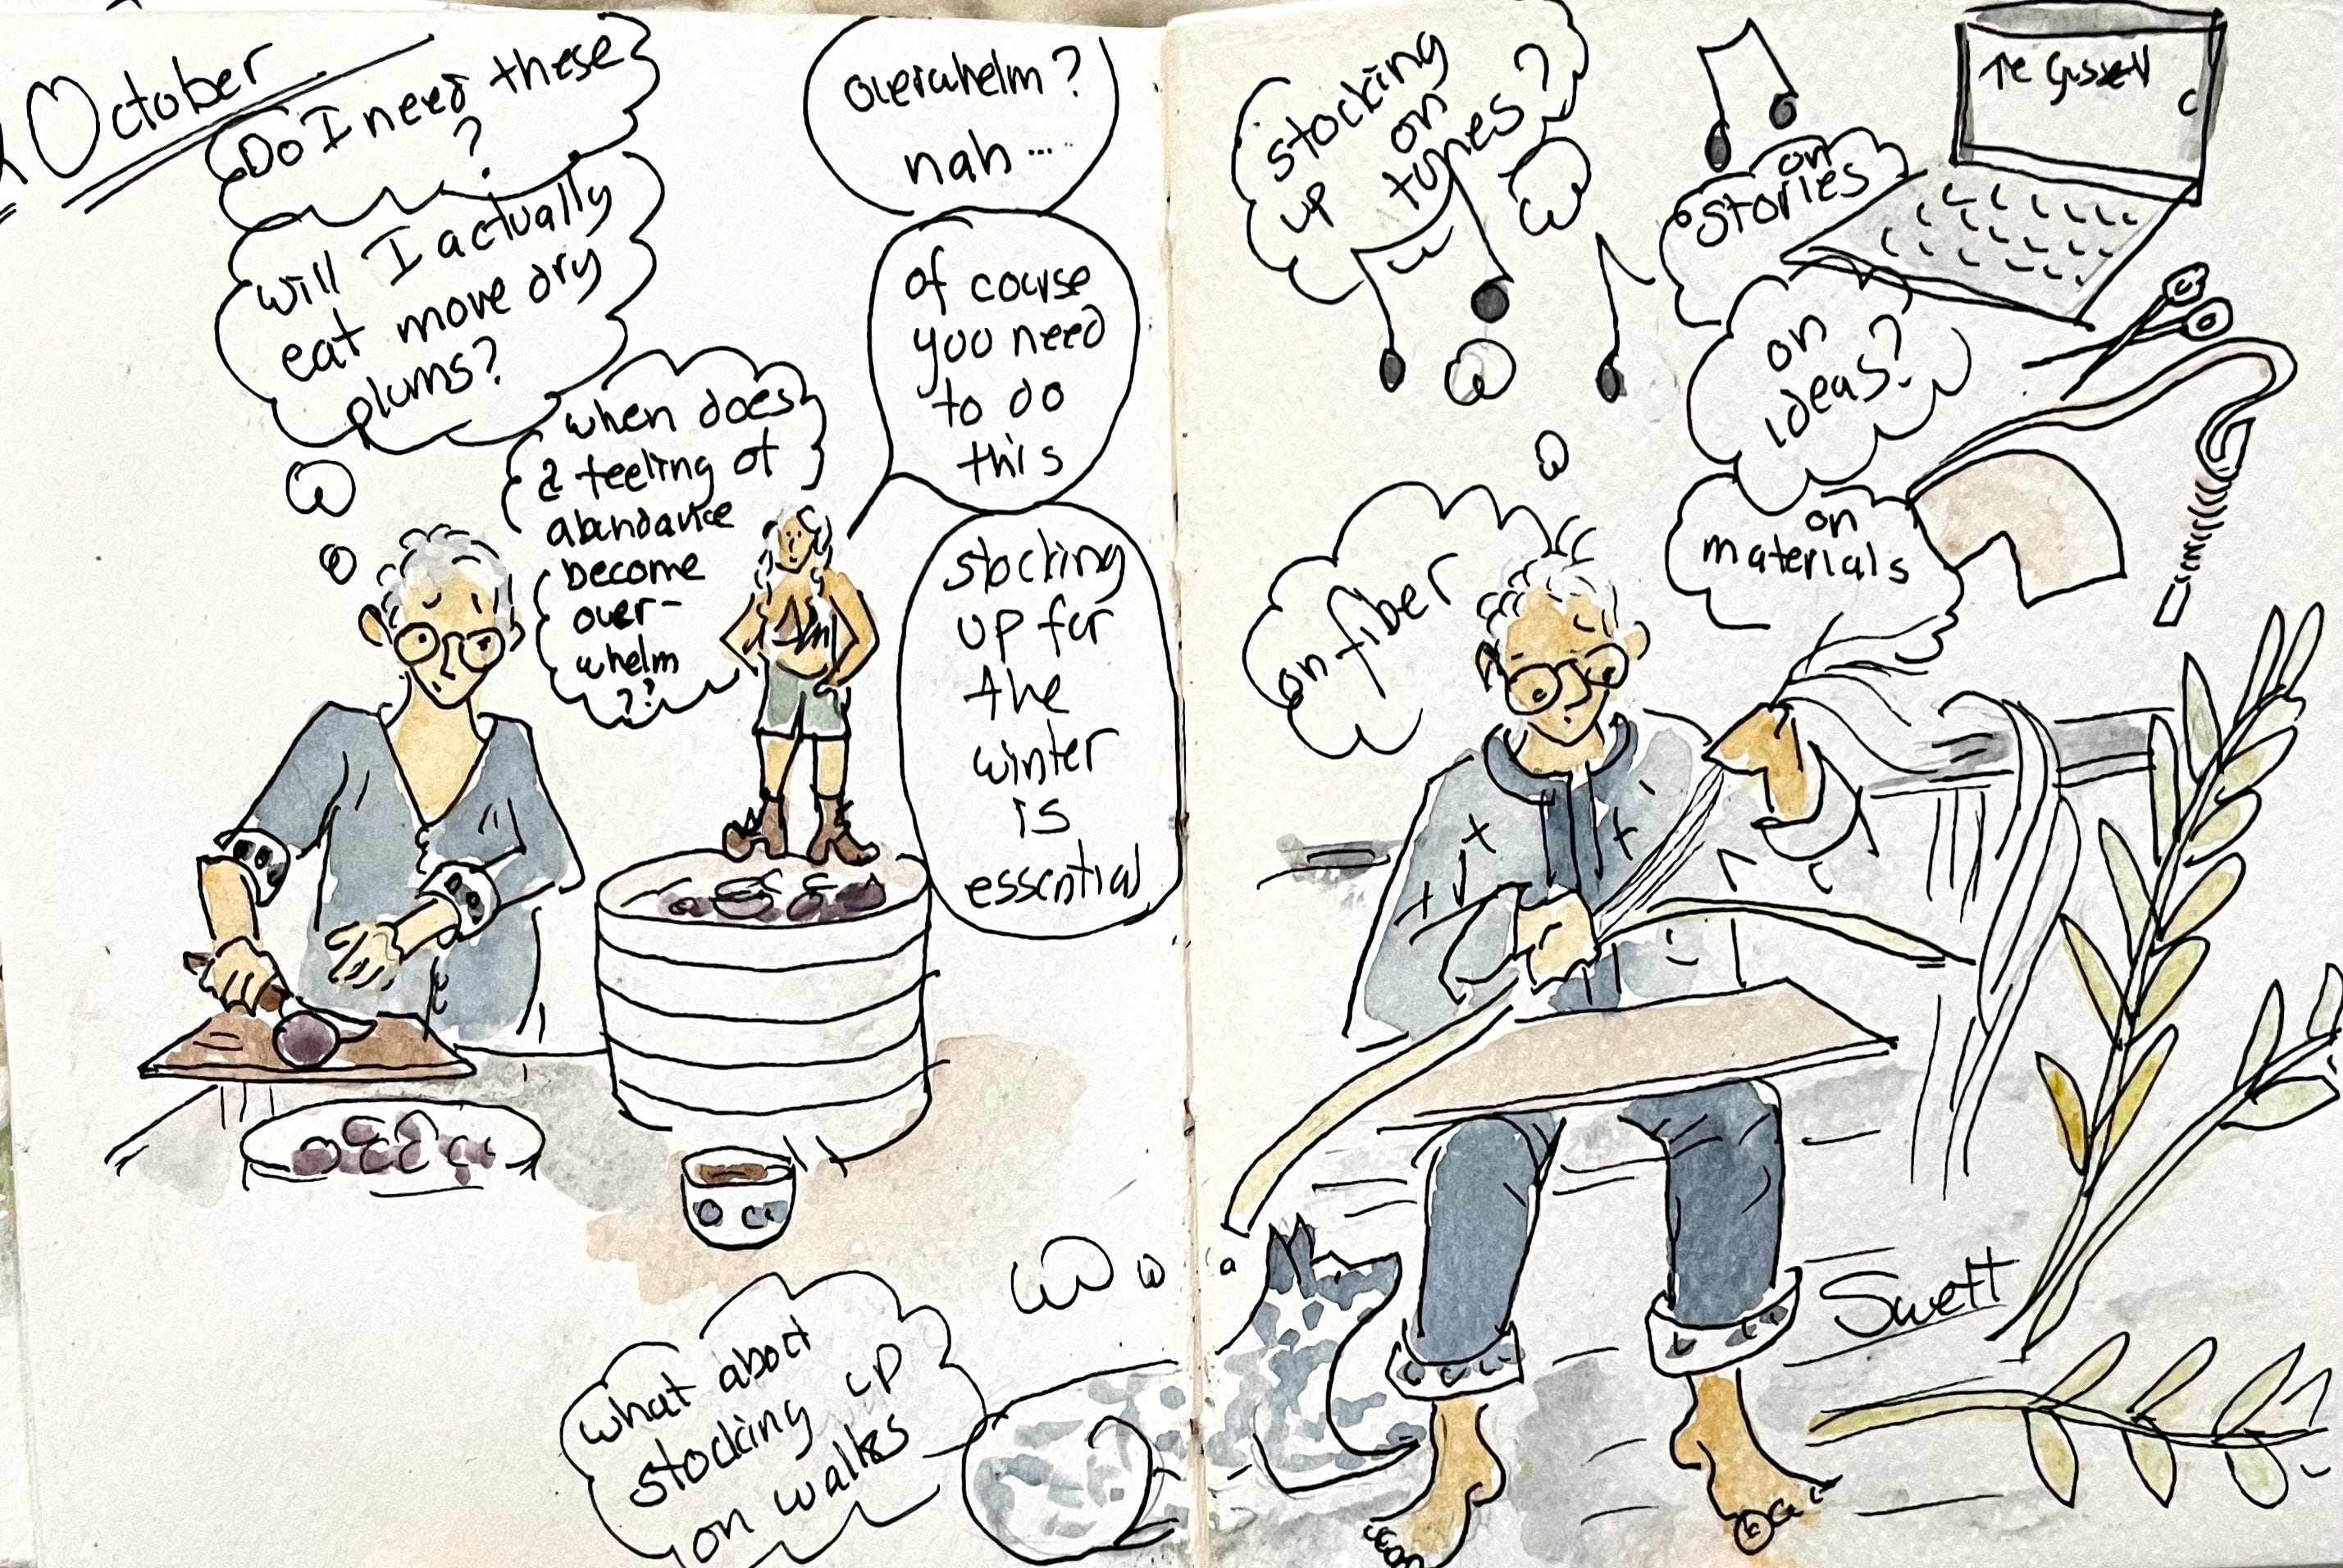 October
Do I need these
?
will I actually
eat more dry
plums?
when does
a feeling of
abundance
become
over-
whelm
??
overwhelm?
nah...
of course
you need
to do
this
stocking
up for
the
winter
is
essential
what about
stocking up
on walks
stocking
up on
tunes?
on
stories
on
ideas?
on
materials
on fiber